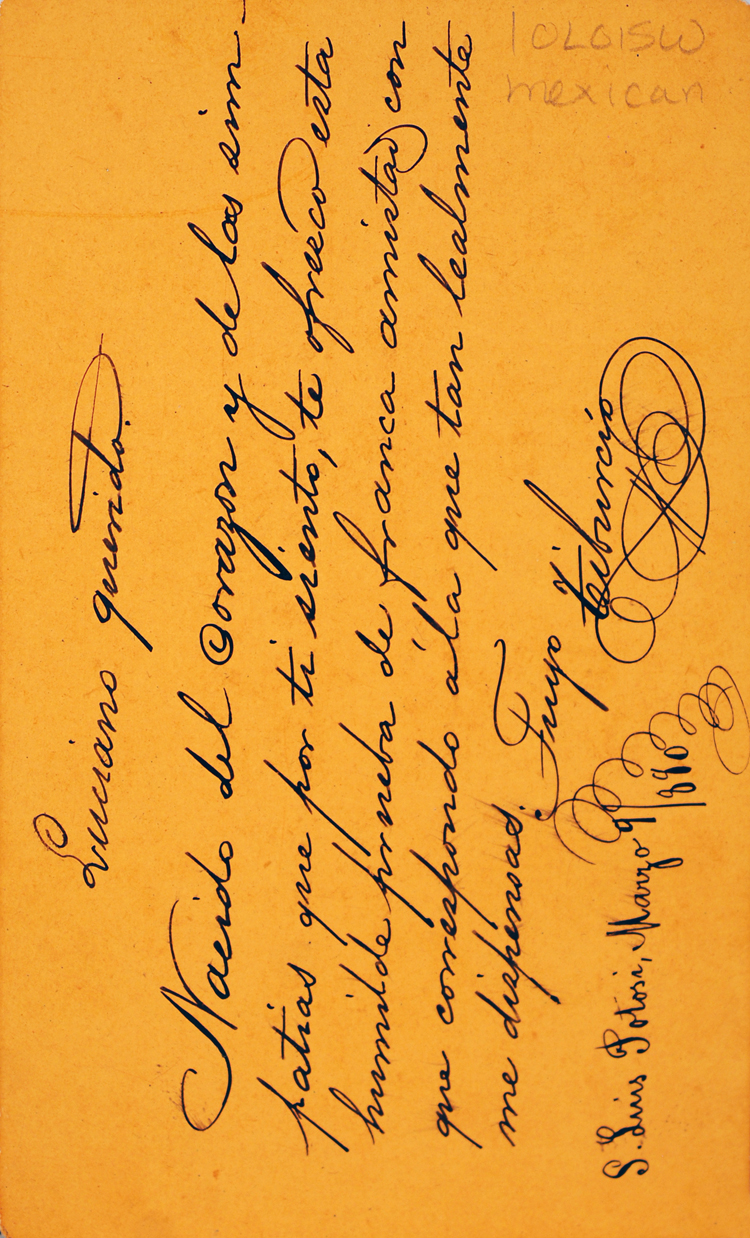 Luciano querido.
Nacido del Corazon y de las sim-
patias que por ti siento, te ofreeco esta
humilde prueba de franca amistad con
que correspondo á la que tan lealmente
me dispensas.
Tuyo Tiburcio
S. Luis Potosi, Marzo 9/890
10L015W
mexican